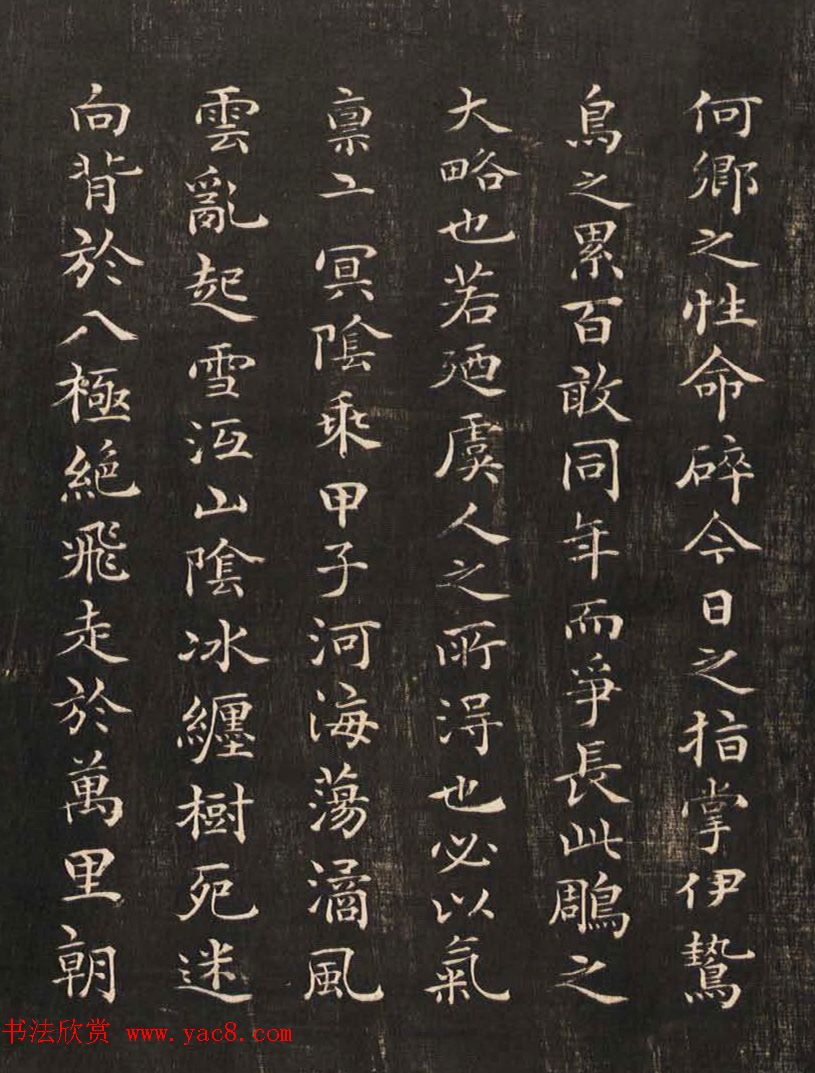 何鄉之性命碎今日之指掌伊鷙
鳥之累百敢同年而爭長此鵰之
大略也若迺虞人之所得也必以氣
禀玄冥陰乘甲子河海蕩潏風
雲亂起雪沍山陰冰纏樹死迷
向背於八極絕飛走於萬里朝
书法欣赏 www.yac8.com